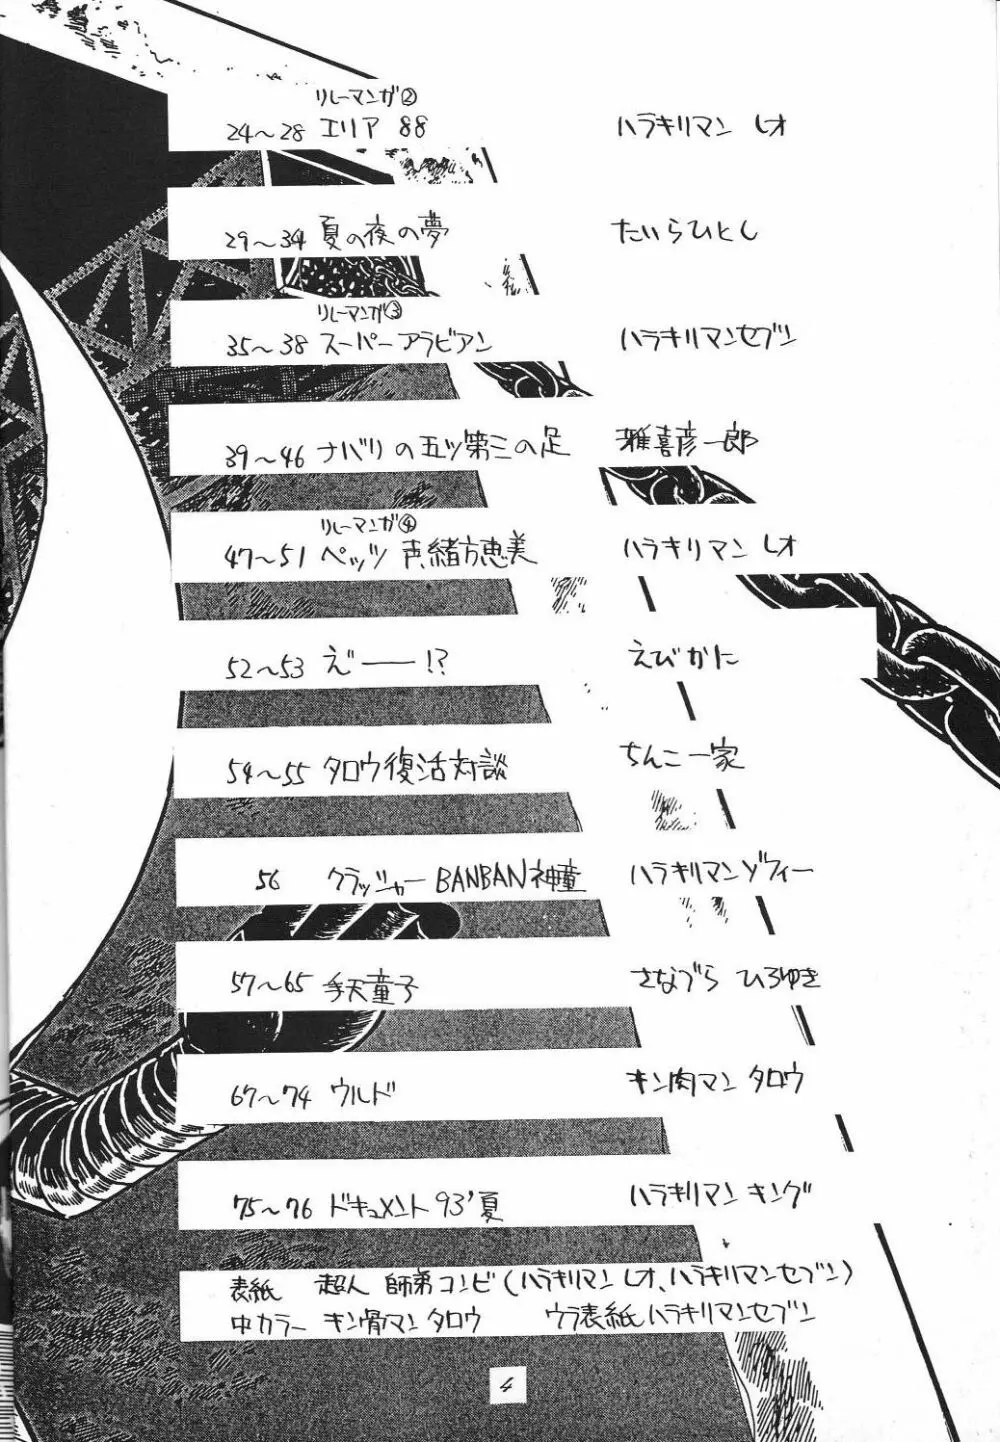 リレーマンガ②
24〜28 エリア 88 ハラキリマン レオ
29〜34 夏の夜の夢 たいらひとし
リレーマンガ③
35〜38 スーパーアラビアン ハラキリマンセブン
39〜46 ナバリの五ツ第三の足 雅喜彦一郎
リレーマンガ④
47〜51 ペッツ 声緒方恵美 ハラキリマン レオ
52〜53 え゛ー!? えびかに
54〜55 タロウ復活対談 ちんこ一家
56 クラッシャーBANBAN神童 ハラキリマンゾフィー
57〜65 手天童子 さなづら ひろゆき
67〜74 ウルド キン肉マン タロウ
75〜76 ドキュメント93'夏 ハラキリマン キング
表紙 超人 師弟コンビ(ハラキリマン レオ、ハラキリマンセブン)
中カラー キン骨マン タロウ ウラ表紙ハラキリマンセブン
4